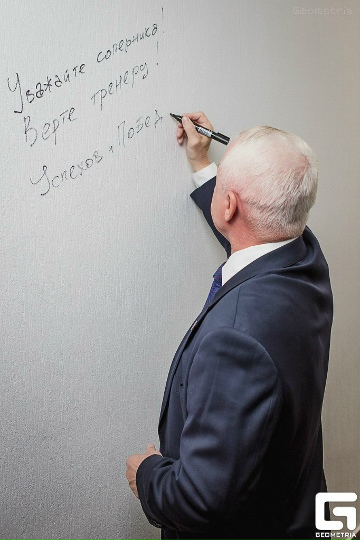 Geometria
Уважайте соперника!
Верте тренеру!
Успехов и Побед
GEOMETRIA